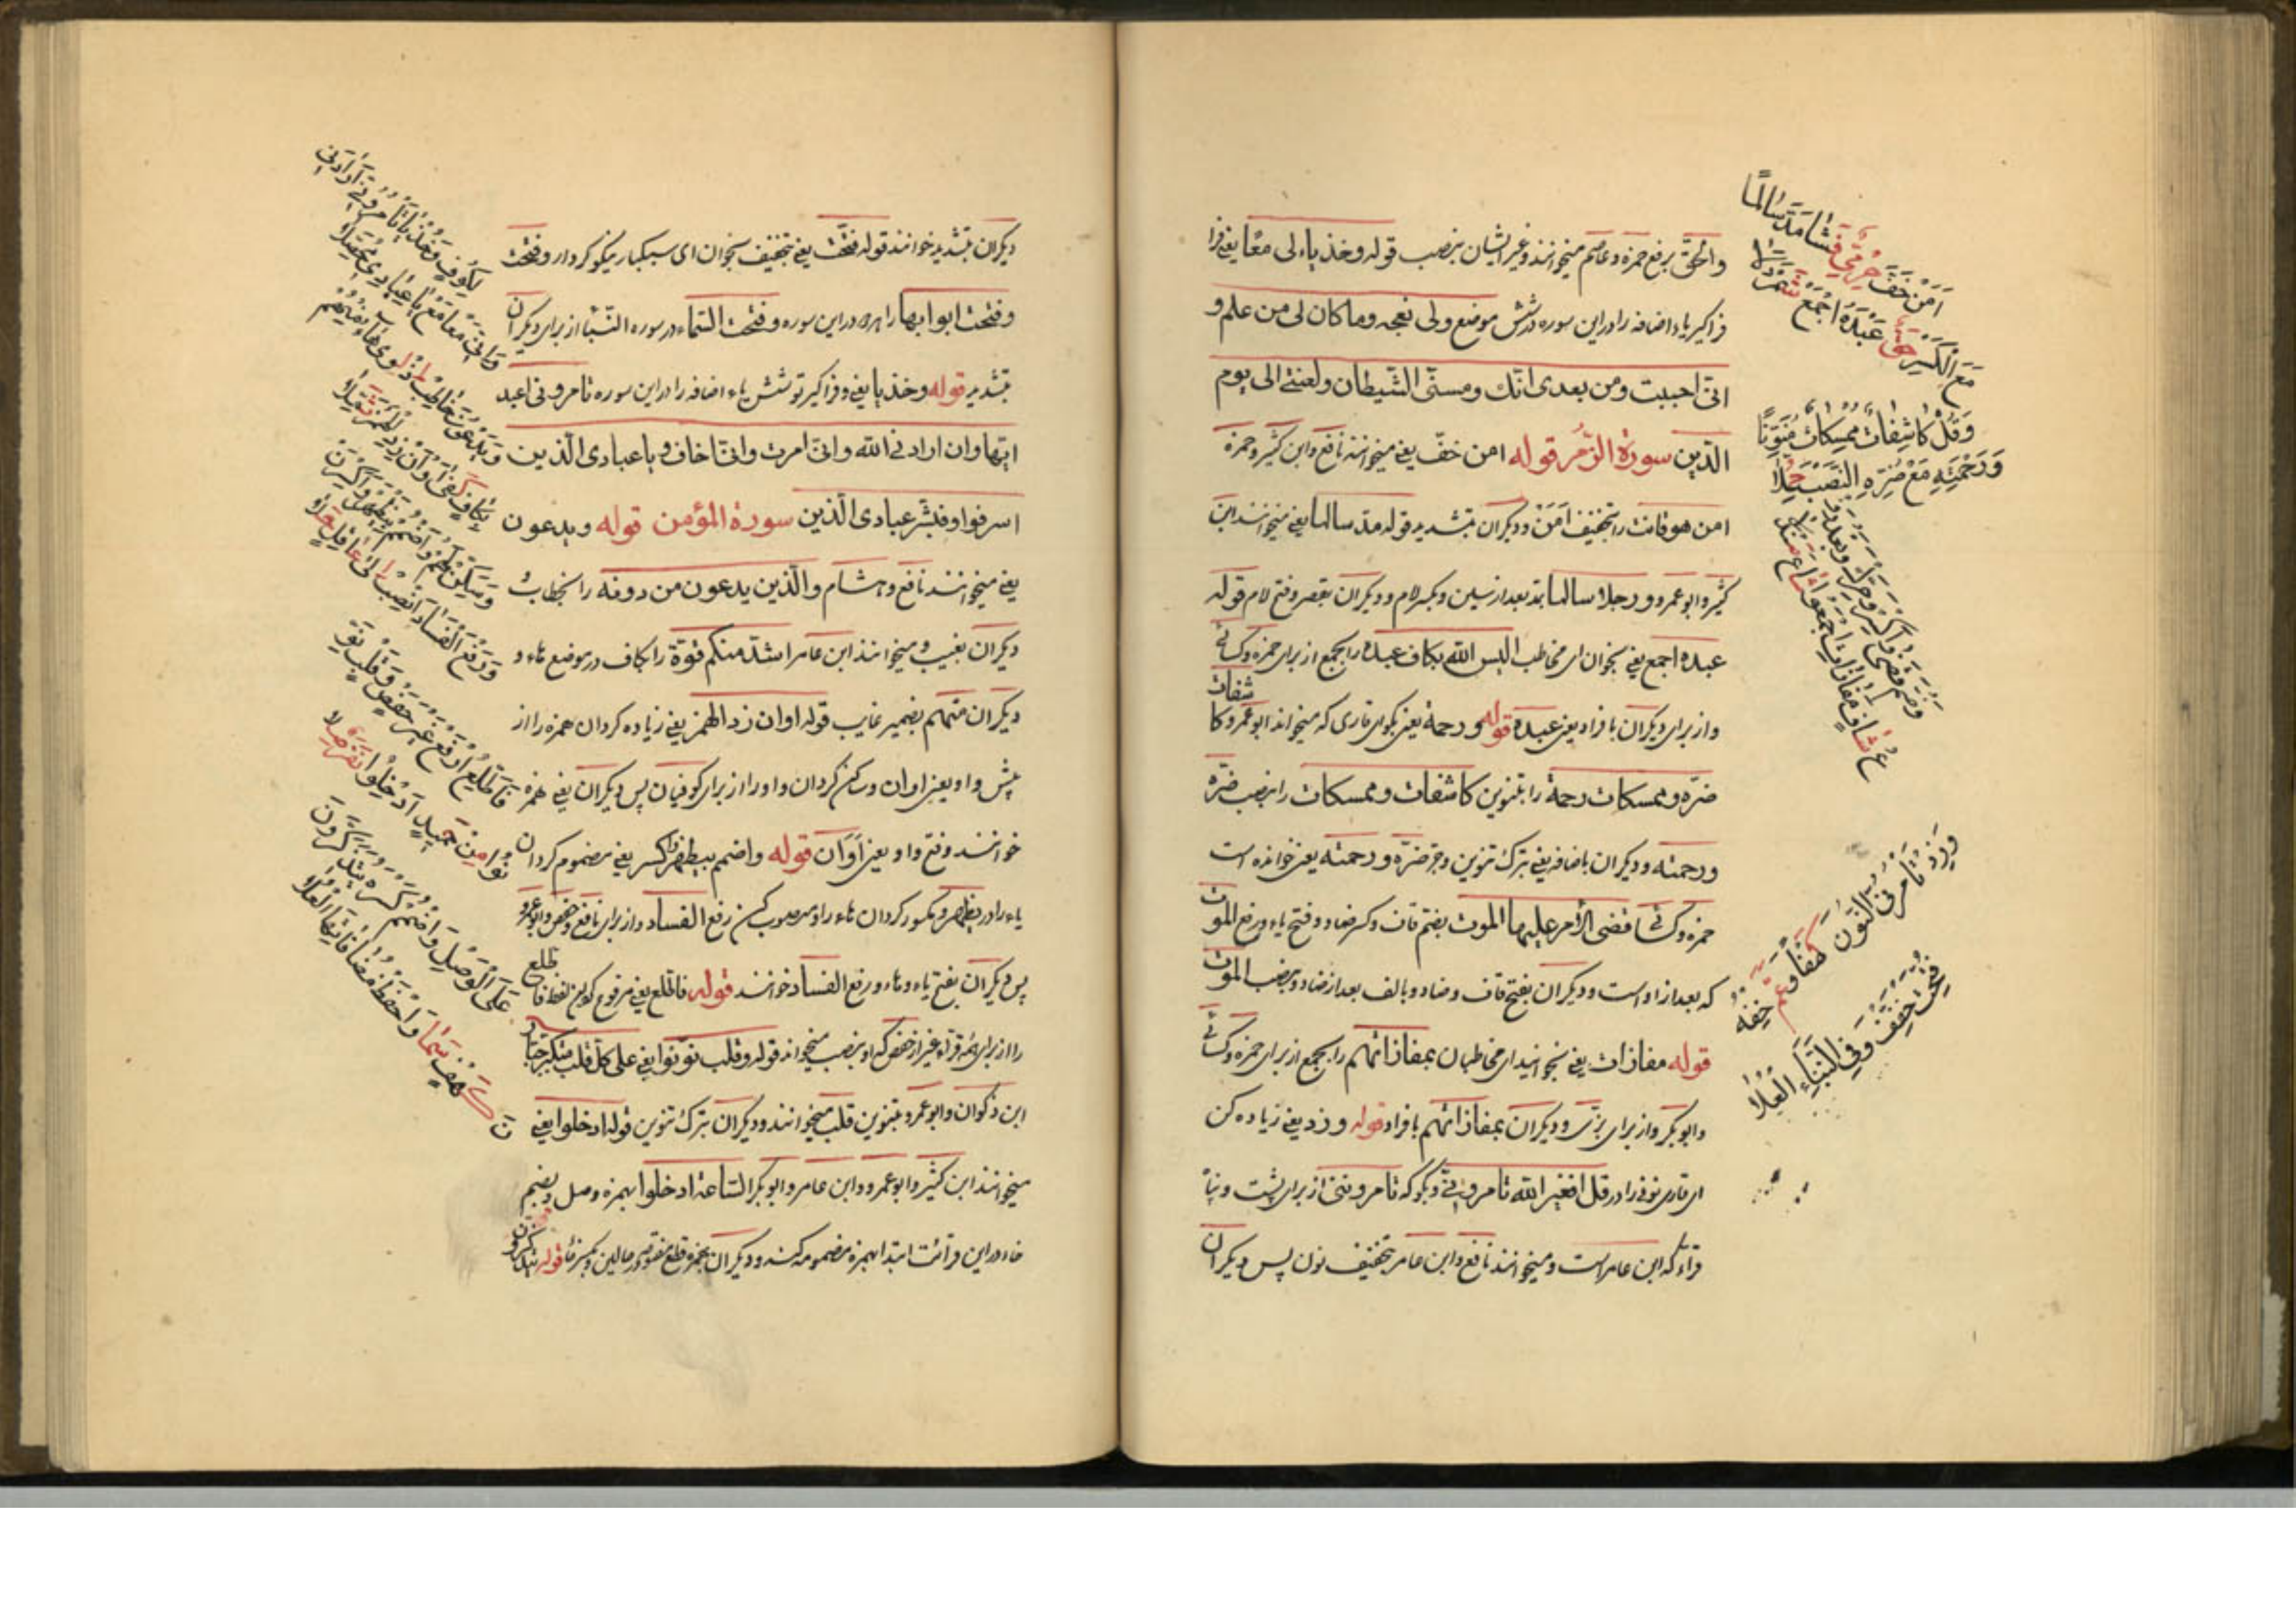 والحق برفع حمزه و عاصم میخوانند و غیر ایشان بنصب قوله وخذ یاء لی معا یعنی فرا
فراگیر یاء اضافه را در این سوره در شش موضع ولی نعجه وما کان لی من علم و
انی احببت ومن بعدی انک ومسنی الشیطان ولعنتی الی یوم
الدین سورة الزمر قوله امن خف یعنی میخوانند نافع و ابن کثیر و حمزه
امن هو قانت را بتخفیف امن و دیگران بتشدید قوله مد سالما یعنی میخوانند ابن
کثیر و ابو عمرو ورجلا سالما بمد بعد از سین و بکسر لام و دیگران بقصر و فتح لام قوله
عبده اجمع یعنی بخوان ای مخاطب الیس الله بکاف عبده را بجمع از برای حمزه و کسائی
و از برای دیگران بافراد یعنی عبده قوله و رحمة یعنی بگو ای قاری که میخواند ابو عمرو کاشفات
ضره و ممسکات رحمة را بتنوین کاشفات و ممسکات را بنصب ضره
ورحمته و دیگران باضافه یعنی بترک تنوین و جر ضره ورحمته یعنی خوانده است
حمزه و کسائی قضی الامر علیها الموت بضم قاف و کسر ضاد و فتح یاء و رفع الموت
که بعد از او است و دیگران بفتح قاف و ضاد و بالف بعد از ضاد و بنصب الموت
قوله مفازات یعنی بخوانید ای مخاطبان بمفازاتهم را بجمع از برای حمزه و کسائی
و ابوبکر و از برای و دیگران بمفازاتهم بافراد قوله و زد یعنی زیاده کن
ای قاری نونی را در قل افغیر الله تامرونی و بگو که تامروننی از برای پشت و پناه
قراء که ابن عامر است و میخوانند نافع و ابن عامر بتخفیف نون پس دیگران
امن خف حرمی فشا مد سالما
مع الکسر حق عبده اجمع شمردلا
وقل کاشفات ممسکات منونا
ورحمته مع ضره النصب حملا
وضم قضی واکسر وحرک وبعد رفـ
ـع شاف مفازات اجمعوا شاع صندلا
وزد تامرونی النون کهفا وعم خفه
فتحت خفف وفی النبأ العلا
دیگران بتشدید خوانند قوله فتحت یعنی بتخفیف بخوان ای سبکبار نیکو کردار وفتحت
وفتحت ابوابها را در این سوره و فتحت السماء در سوره النبأ از برای دیگران
بتشدید قوله وخذ یا یعنی و فراگیر تو شش یاء اضافه را در این سوره تامرونی اعبد
ایها وان ارادنی الله وانی امرت وانی اخاف ویا عبادی الذین
اسرفوا وفبشر عبادی الذین سورة المؤمن قوله ویدعون
یعنی میخوانند نافع و هشام والذین یدعون من دونه را بخطاب
دیگران بغیب و میخوانند ابن عامر اشد منکم قوة را بکاف در موضع هاء و
دیگران منهم بضمیر غایب قوله او ان زد الهمز یعنی زیاده گردان همزه را از
پیش واو یعنی او ان و ساکن گردان واو را از برای کوفیان پس دیگران یعنی همزه
خوانند و فتح واو یعنی وان قوله واضمم بیظهر واکسر یعنی مضموم گردان
یاء را در یظهر و مکسور گردان هاء را و منصوب کن رفع الفساد و از برای نافع و حفص و ابو عمرو
پس دیگران بفتح یاء و هاء و رفع الفساد خوانند قوله فاطلع یعنی مرفوع لفظ فاطلع
را از برای قراء غیر از حفص که او بنصب میخواند قوله وقلب نونوا یعنی علی کل قلب متکبر جبار
ابن ذکوان و ابو عمرو بتنوین قلب میخوانند و دیگران بترک تنوین قوله ادخلوا یعنی
میخوانند ابن کثیر و ابو عمرو و ابن عامر و ابوبکر الساعة ادخلوا بهمزه وصل و بضم
خاء در این قرائت ابتدا بهمزه مضمومه کنند و دیگران بهمزه قطع مفتوح در حالین و بکسر خاء قوله یتذکرون
لکوف وخذ یا تامرونی ارادنی
وانی معا مع یا عبادی فحصلا
ویدعون خاطب اذ لوی هاء منهم
بکاف کفی او ان زد الهمز ثملا
وسکن لهم واضمم بیظهر واکسرن
ورفع الفساد انصب الی عاقل حلا
فاطلع ارفع غیر حفص وقلب نو
نوا من حمید ادخلوا نفر صلا
علی الوصل واضمم کسره یتذکرو
ن کهف سما واحفظ مضافاتها العلا